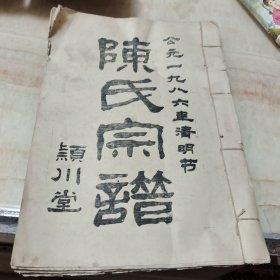 公元一九八六年清明节
陳氏宗譜
潁川堂